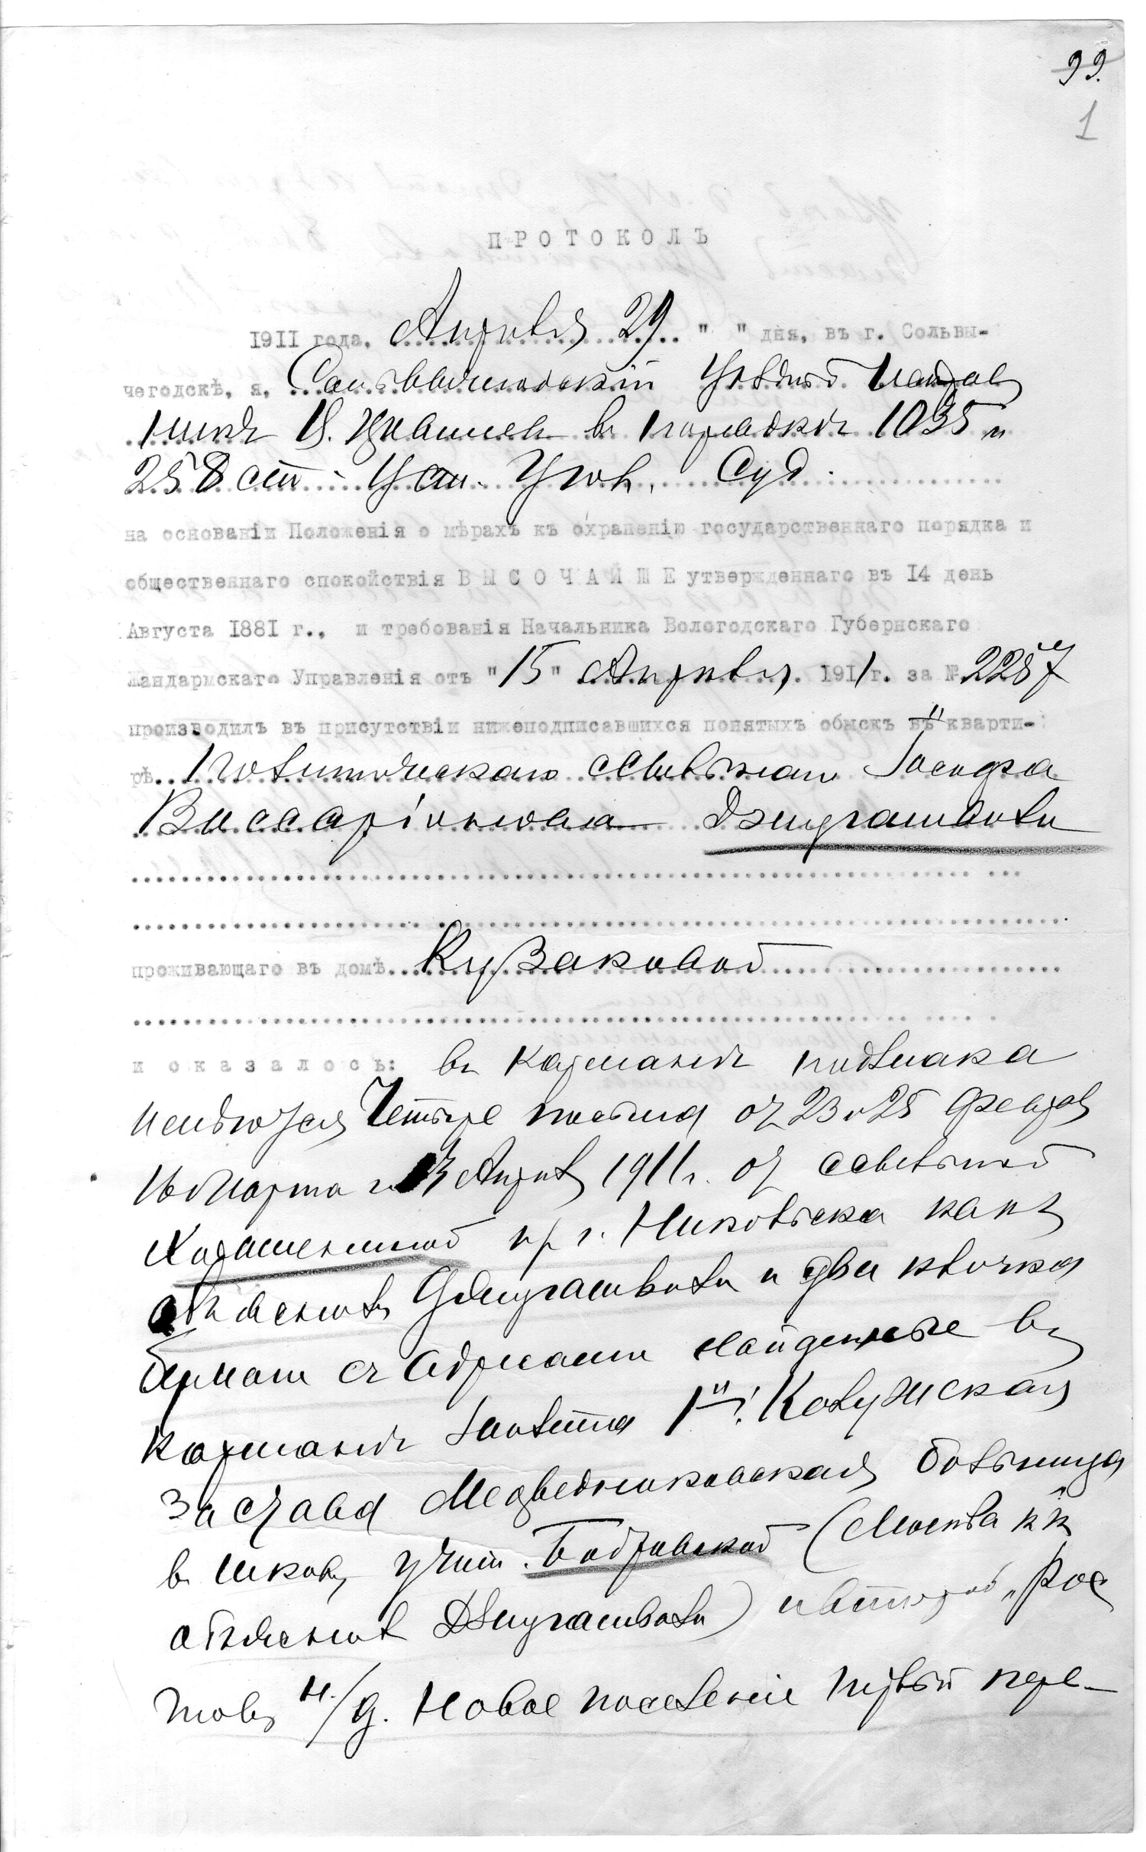 99.
1
ПРОТОКОЛЪ
1911 года, Апрѣля 29 " " дня, въ г. Сольвы-
чегодскѣ, я, Сольвычегодскій Уѣздный Исправ
никъ Цивилев въ порядкѣ 1035 и
258 ст. Уст. Угол. Суд.
на основаніи Положенія о мѣрахъ къ охраненію государственнаго порядка и
общественнаго спокойствія ВЫСОЧАЙШЕ утвержденнаго въ 14 день
Августа 1881 г., и требованія Начальника Вологодскаго Губернскаго
Жандармскаго Управленія отъ "15" Апрѣля 1911 г. за № 2287
производилъ въ присутствіи нижеподписавшихся понятыхъ обыскъ въ кварти-
рѣ Политическаго ссыльнаго Іосифа
Виссаріонова Джугашвили
проживающаго въ домѣ Кузаковой
и оказалось: въ карманѣ пиджака
имѣются четыре письма от 23 и 25 Феврал
16 Марта и Апрѣл 1911 г. от ссыльной
из г. Никольска какъ
объяснил Джугашвили и два клочка
бумаги съ адресами найденные въ
карманѣ 1й: Калужская
застава Медведниковская больница
в школ, учит. Бобровской (Москва как
объяснил Джугашвили) и второй "Рос
тов н/Д. Новое поселеніе первый пере-